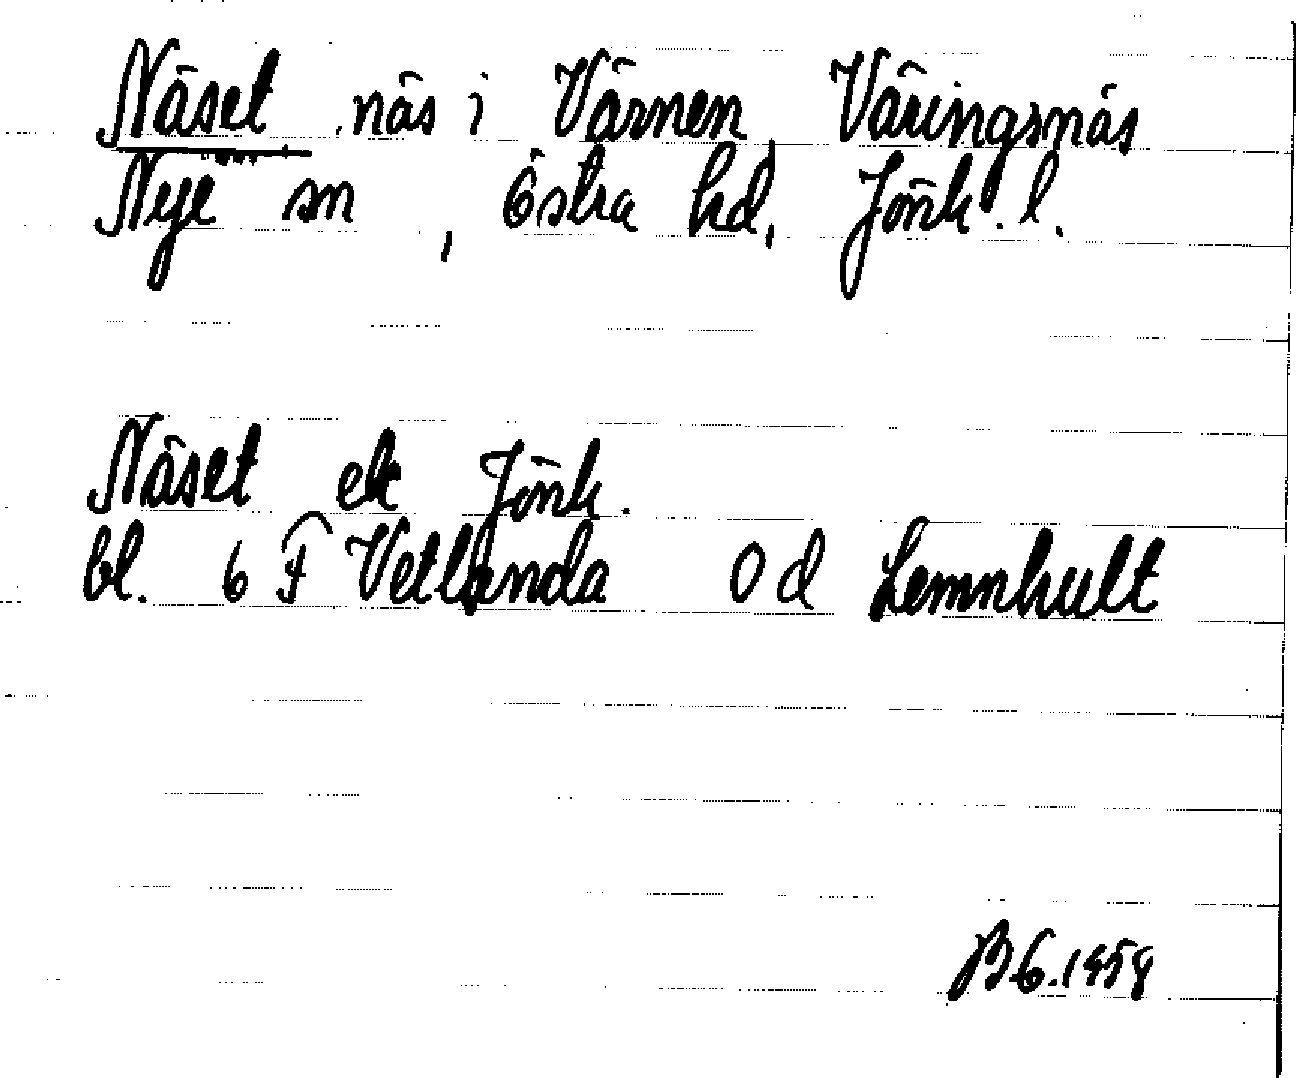 Näset näs i Värnen, Väringsnäs
Nye sn, Östra hd, Jönk. l.
Näset ek Jönk.
bl. 6 F Vetlanda 0 d Lemnhult
BG. 1958